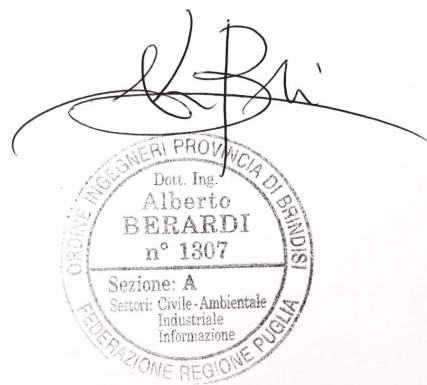 ORDINE INGEGNERI PROVINCIA DI BRINDISI
Dott. Ing.
Alberto
BERARDI
n° 1307
Sezione: A
Settori: Civile-Ambientale
Industriale
Informazione
FEDERAZIONE REGIONE PUGLIA